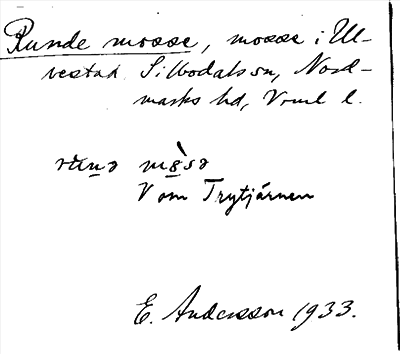 Runde mosse, mosse i Ul-
vestad Silbodals sn, Nord-
marks hd, Vrml l.
V om Trytjärnen
E. Andersson 1933.